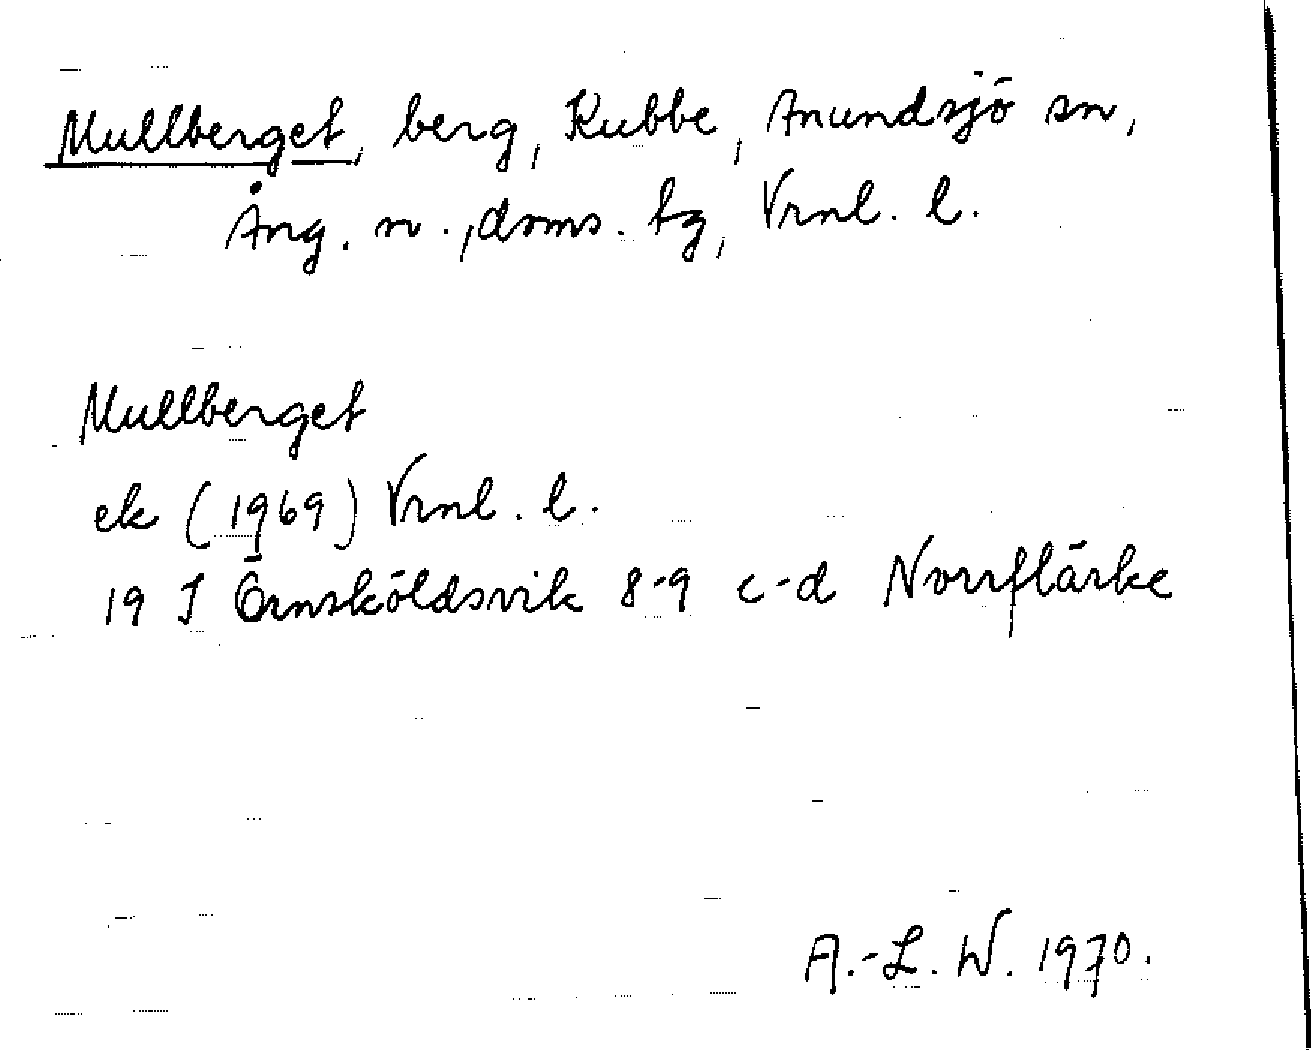 Mullberget, berg, Kubbe, Anundsjö sn,
Ång. n., doms. tg, Vrnl. l.
Mullberget
ek (1969) Vrnl. l.
19 J Örnsköldsvik 8-9 c-d Norrflärke
A.-L. W. 1970.